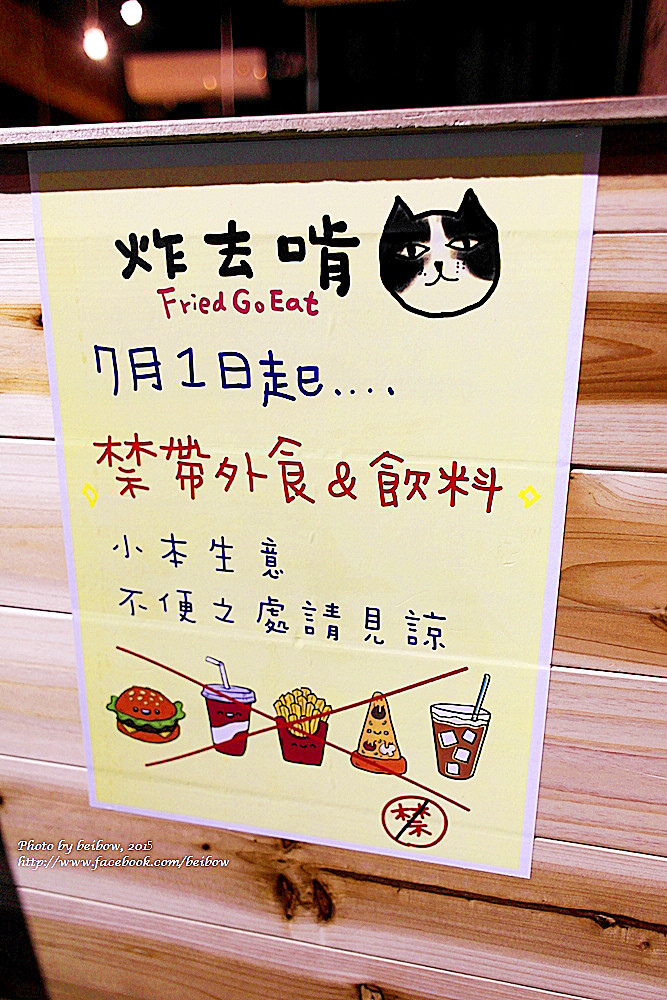 炸去啃
Fried Go Eat
7月1日起....
禁帶外食&飲料
小本生意
不便之處請見諒
禁
Photo by beibow, 2015
http://www.facebook.com/beibow